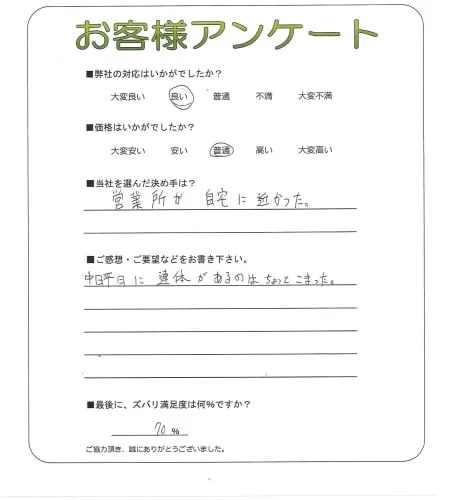 お客様アンケート
■弊社の対応はいかがでしたか？
大変良い 良い 普通 不満 大変不満
■価格はいかがでしたか？
大変安い 安い 普通 高い 大変高い
■当社を選んだ決め手は？
営業所が 自宅に近かった。
■ご感想・ご要望などをお書き下さい。
平日に 連休があるのはちょっとこまった。
■最後に、ズバリ満足度は何％ですか？
70 ％
ご協力頂き、誠にありがとうございました。